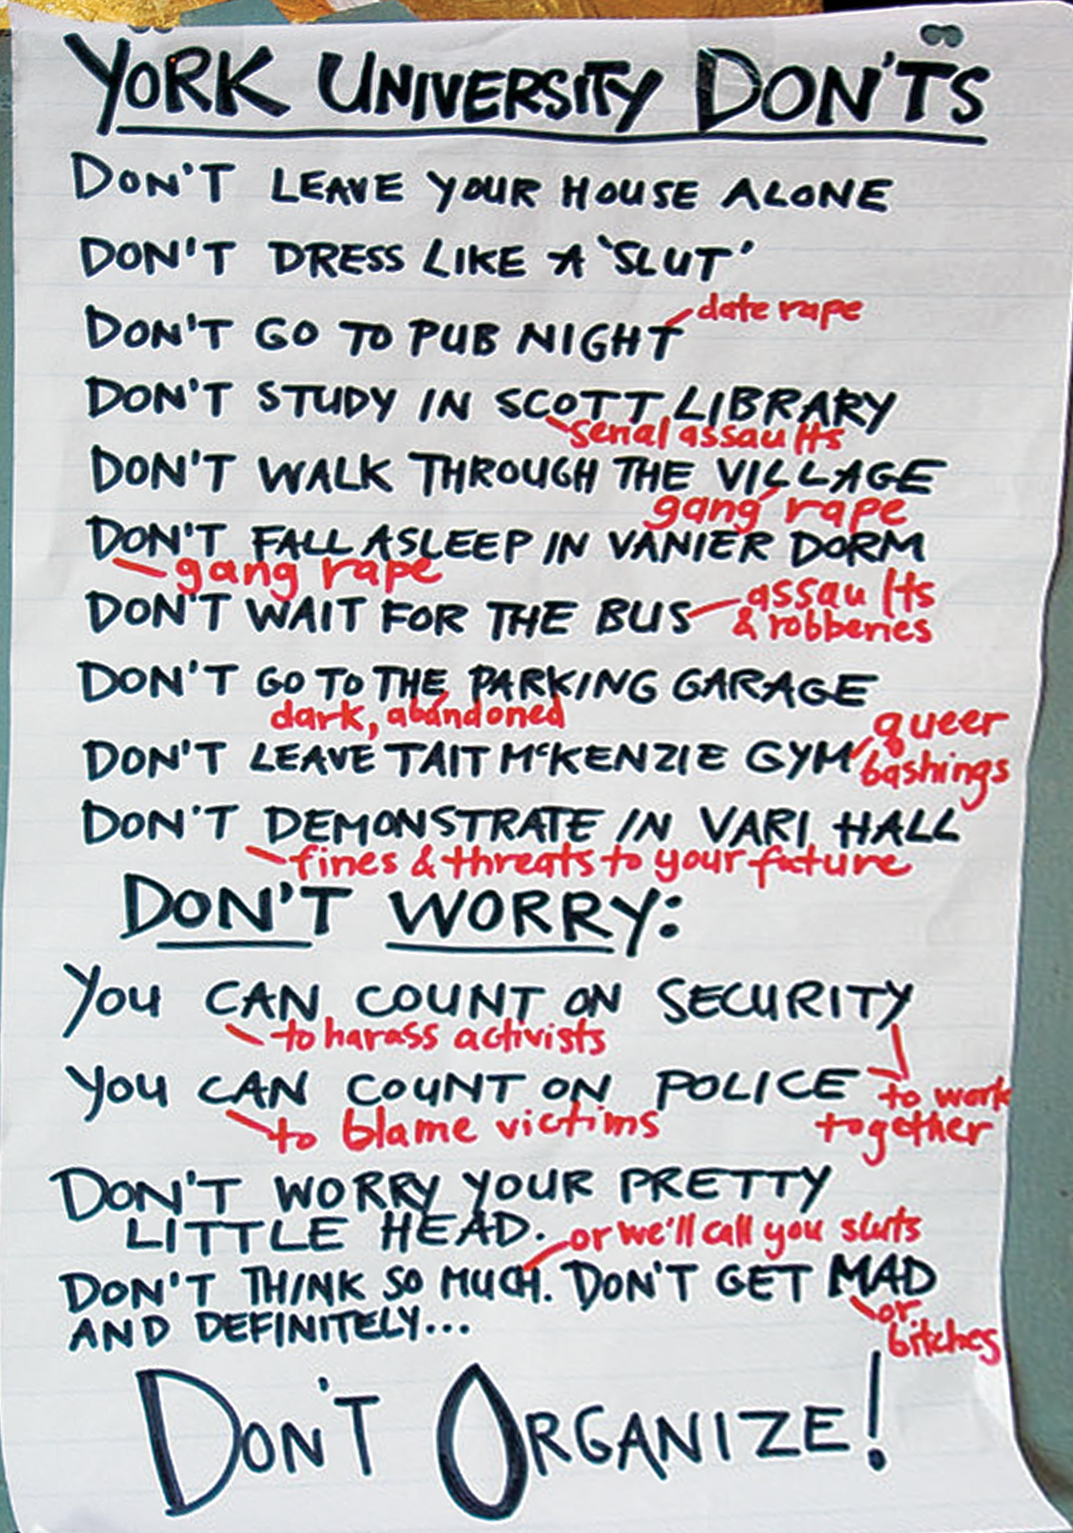 YORK UNIVERSITY DON'TS
DON'T LEAVE YOUR HOUSE ALONE
DON'T DRESS LIKE A 'SLUT'
date rape
DON'T GO TO PUB NIGHT
DON'T STUDY IN SCOTT LIBRARY
serial assaults
DON'T WALK THROUGH THE VILLAGE
gang rape
DON'T FALL ASLEEP IN VANIER DORM
gang rape
DON'T WAIT FOR THE BUS
assaults
& robberies
DON'T GO TO THE PARKING GARAGE
dark, abandoned
DON'T LEAVE TAIT McKENZIE GYM
queer
bashings
DON'T DEMONSTRATE IN VARI HALL
fines & threats to your future
DON'T WORRY:
YOU CAN COUNT ON SECURITY
to harass activists
YOU CAN COUNT ON POLICE
to work
together
to blame victims
DON'T WORRY YOUR PRETTY
LITTLE HEAD.
or we'll call you sluts
DON'T THINK SO MUCH. DON'T GET MAD
or
bitches
AND DEFINITELY...
DON'T ORGANIZE!